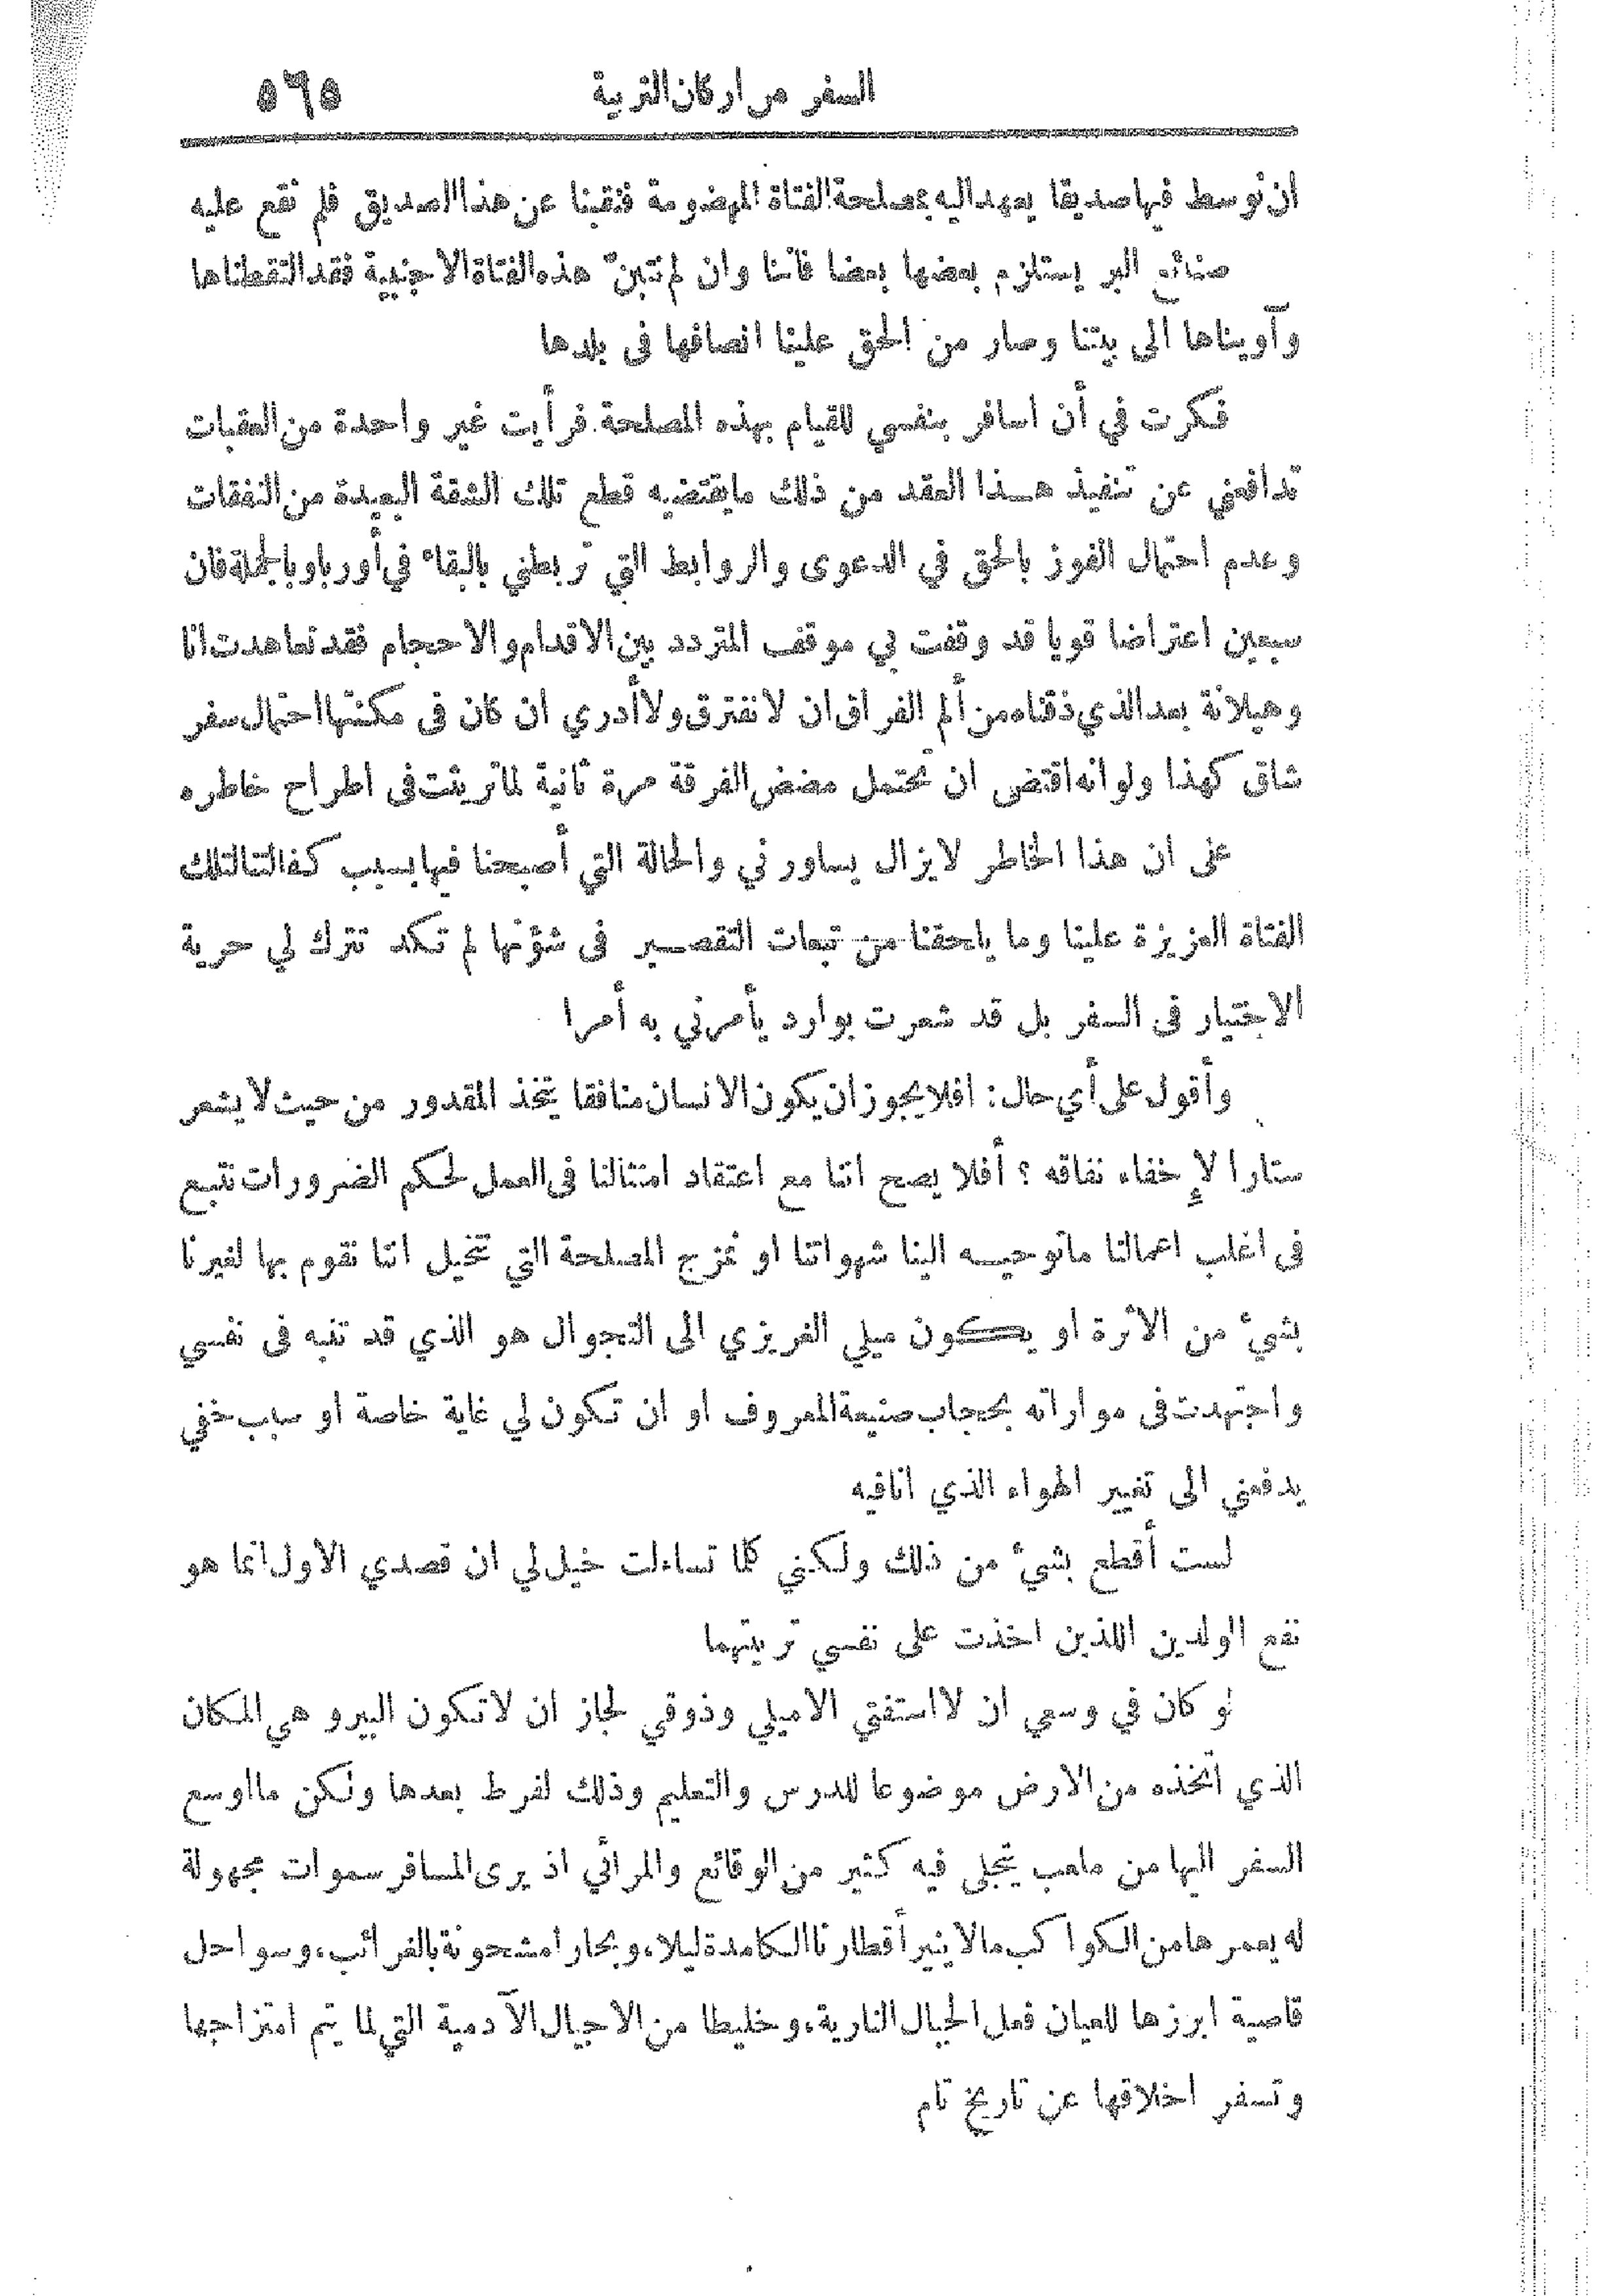 السفر من اركان التربية ٥٦٥
ان نوسط فيها صديقا يعهد اليه بمصلحة الفتاة المهضومة فنقبنا عن هذا الصديق فلم نقع عليه
صنائع البر يستلزم بعضها بعضا فاننا وان لم نتبنّ هذه الفتاة الاجنبية فقد التقطناها
وآويناها الى بيتنا وصار من الحق علينا انصافها فى بلدها
فكرت في أن اسافر بنفسي للقيام بهذه المصلحة فرأيت غير واحدة من العقبات
تدافعني عن تنفيذ هــذا العقد من ذلك مايقتضيه قطع تلك الشقة البعيدة من النفقات
وعدم احتمال الفوز بالحق في الدعوى والروابط التي تربطني بالبقاء في أوربا وبالجملة فان
سبعين اعتراضا قويا قد وقفت بي موقف المتردد بين الاقدام والاحجام فقد تعاهدت انا
وهيلانة بعد الذي ذقناه من ألم الفراق ان لا نفترق ولا أدري ان كان فى مكنتها احتمال سفر
شاق كهذا ولو انه اقتضى ان نحتمل مضض الفرقة مرة ثانية لما تريثت فى اطراح خاطره
على ان هذا الخاطر لا يزال يساورني والحالة التي أصبحنا فيها بسبب كفالتنا لتلك
الفتاة العزيزة علينا وما يلحقنا من تبعات التقصــير فى شؤنها لم تكد تترك لي حرية
الاختيار فى السفر بل قد شعرت بوارد يأمرني به أمرا
وأقول على أي حال : افلا يجوز ان يكون الانسان منافقا يتخذ المقدور من حيث لا يشعر
ستارا لإخفاء نفاقه ؟ أفلا يصح اننا مع اعتقاد امتثالنا فى العمل لحكم الضرورات نتبع
فى اغلب اعمالنا ماتوحيــه الينا شهواتنا او نمزج المصلحة التي نتخيل اننا نقوم بها لغيرنا
بشيء من الاثرة او يكــون ميلي الغريزي الى التجوال هو الذي قد تنبه فى نفسي
واجتهدت فى مواراته بحجاب صنيعة المعروف او ان تكون لي غاية خاصة او سبب خفي
يدفعني الى تغيير الهواء الذي انا فيه
لست أقطع بشيء من ذلك ولكني كلما تساءلت خيل لي ان قصدي الاول انما هو
نفع الولدين اللذين اخذت على نفسي تربيتهما
لو كان في وسعي ان لا استفتي الا ميلي وذوقي لجاز ان لا تكون البيرو هي المكان
الذي اتخذه من الارض موضوعا للدرس والتعليم وذلك لفرط بعدها ولكن ما اوسع
السفر اليها من ملعب يتجلى فيه كثير من الوقائع والمرائي اذ يرى المسافر سموات مجهولة
له يعمرها من الكواكب مالا ينير أقطارنا الكامدة ليلا، وبحارا مشحونة بالغرائب، وسواحل
قاصية ابرزها للعيان فعل الجبال النارية، وخليطا من الاجيال الآدمية التي لما يتم امتزاجها
وتسفر اخلاقها عن تاريخ تام